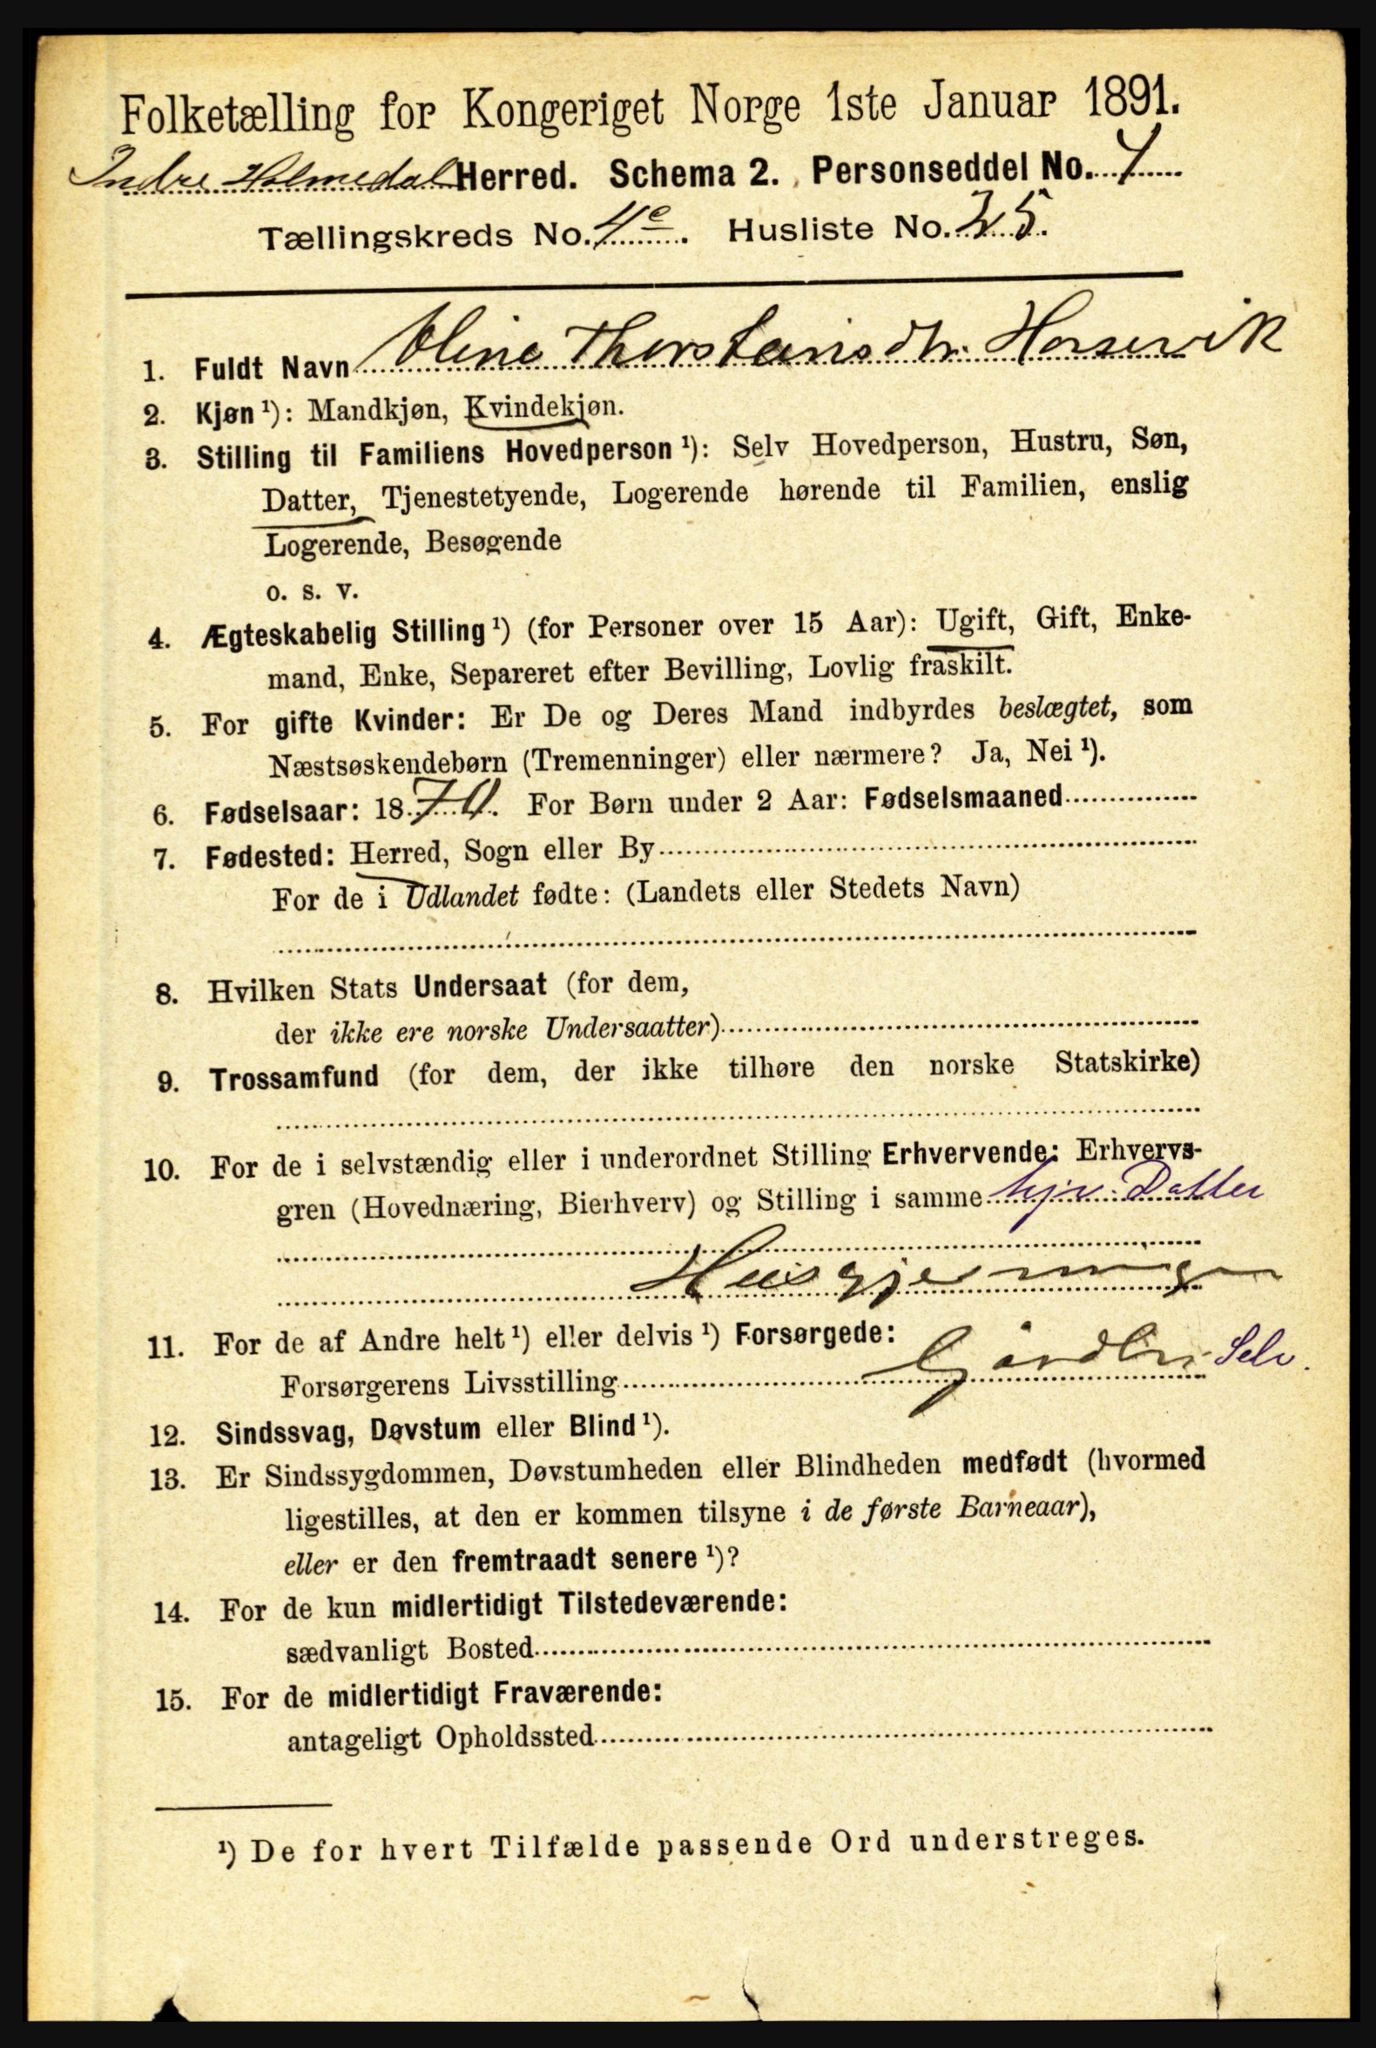 Folketælling for Kongeriget Norge 1ste Januar 1891.
Indre Holmedal Herred. Schema 2. Personseddel No. 4
Tællingskreds No. 4e. Husliste No. 25.
1. Fuldt Navn Oline Thorsteinsdtr. Horsevik
2. Kjøn ¹): Mandkjøn, Kvindekjøn.
3. Stilling til Familiens Hovedperson ¹): Selv Hovedperson, Hustru, Søn,
Datter, Tjenestetyende, Logerende hørende til Familien, enslig
Logerende, Besøgende
o. s. v.
4. Ægteskabelig Stilling ¹) (for Personer over 15 Aar): Ugift, Gift, Enke-
mand, Enke, Separeret efter Bevilling, Lovlig fraskilt.
5. For gifte Kvinder: Er De og Deres Mand indbyrdes beslægtet, som
Næstsøskendebørn (Tremenninger) eller nærmere? Ja, Nei ¹).
6. Fødselsaar: 1870. For Børn under 2 Aar: Fødselsmaaned
7. Fødested: Herred, Sogn eller By
For de i Udlandet fødte: (Landets eller Stedets Navn)
8. Hvilken Stats Undersaat (for dem,
der ikke ere norske Undersaatter)
9. Trossamfund (for dem, der ikke tilhøre den norske Statskirke)
10. For de i selvstændig eller i underordnet Stilling Erhvervende: Erhvervs-
gren (Hovednæring, Bierhverv) og Stilling i samme hjv. Datter
Husgjerning
11. For de af Andre helt ¹) eller delvis ¹) Forsørgede:
Forsørgerens Livsstilling Gårdbr. Selv.
12. Sindssvag, Døvstum eller Blind ¹).
13. Er Sindssygdommen, Døvstumheden eller Blindheden medfødt (hvormed
ligestilles, at den er kommen tilsyne i de første Barneaar),
eller er den fremtraadt senere ¹)?
14. For de kun midlertidigt Tilstedeværende:
sædvanligt Bosted
15. For de midlertidigt Fraværende:
antageligt Opholdssted
¹) De for hvert Tilfælde passende Ord understreges.